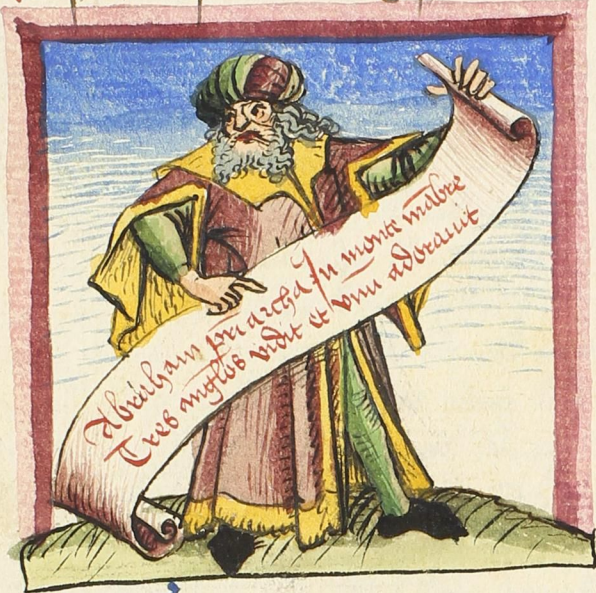 Abraham pri archa In monte mabre
Tres anglos vidit et vnu adorauit